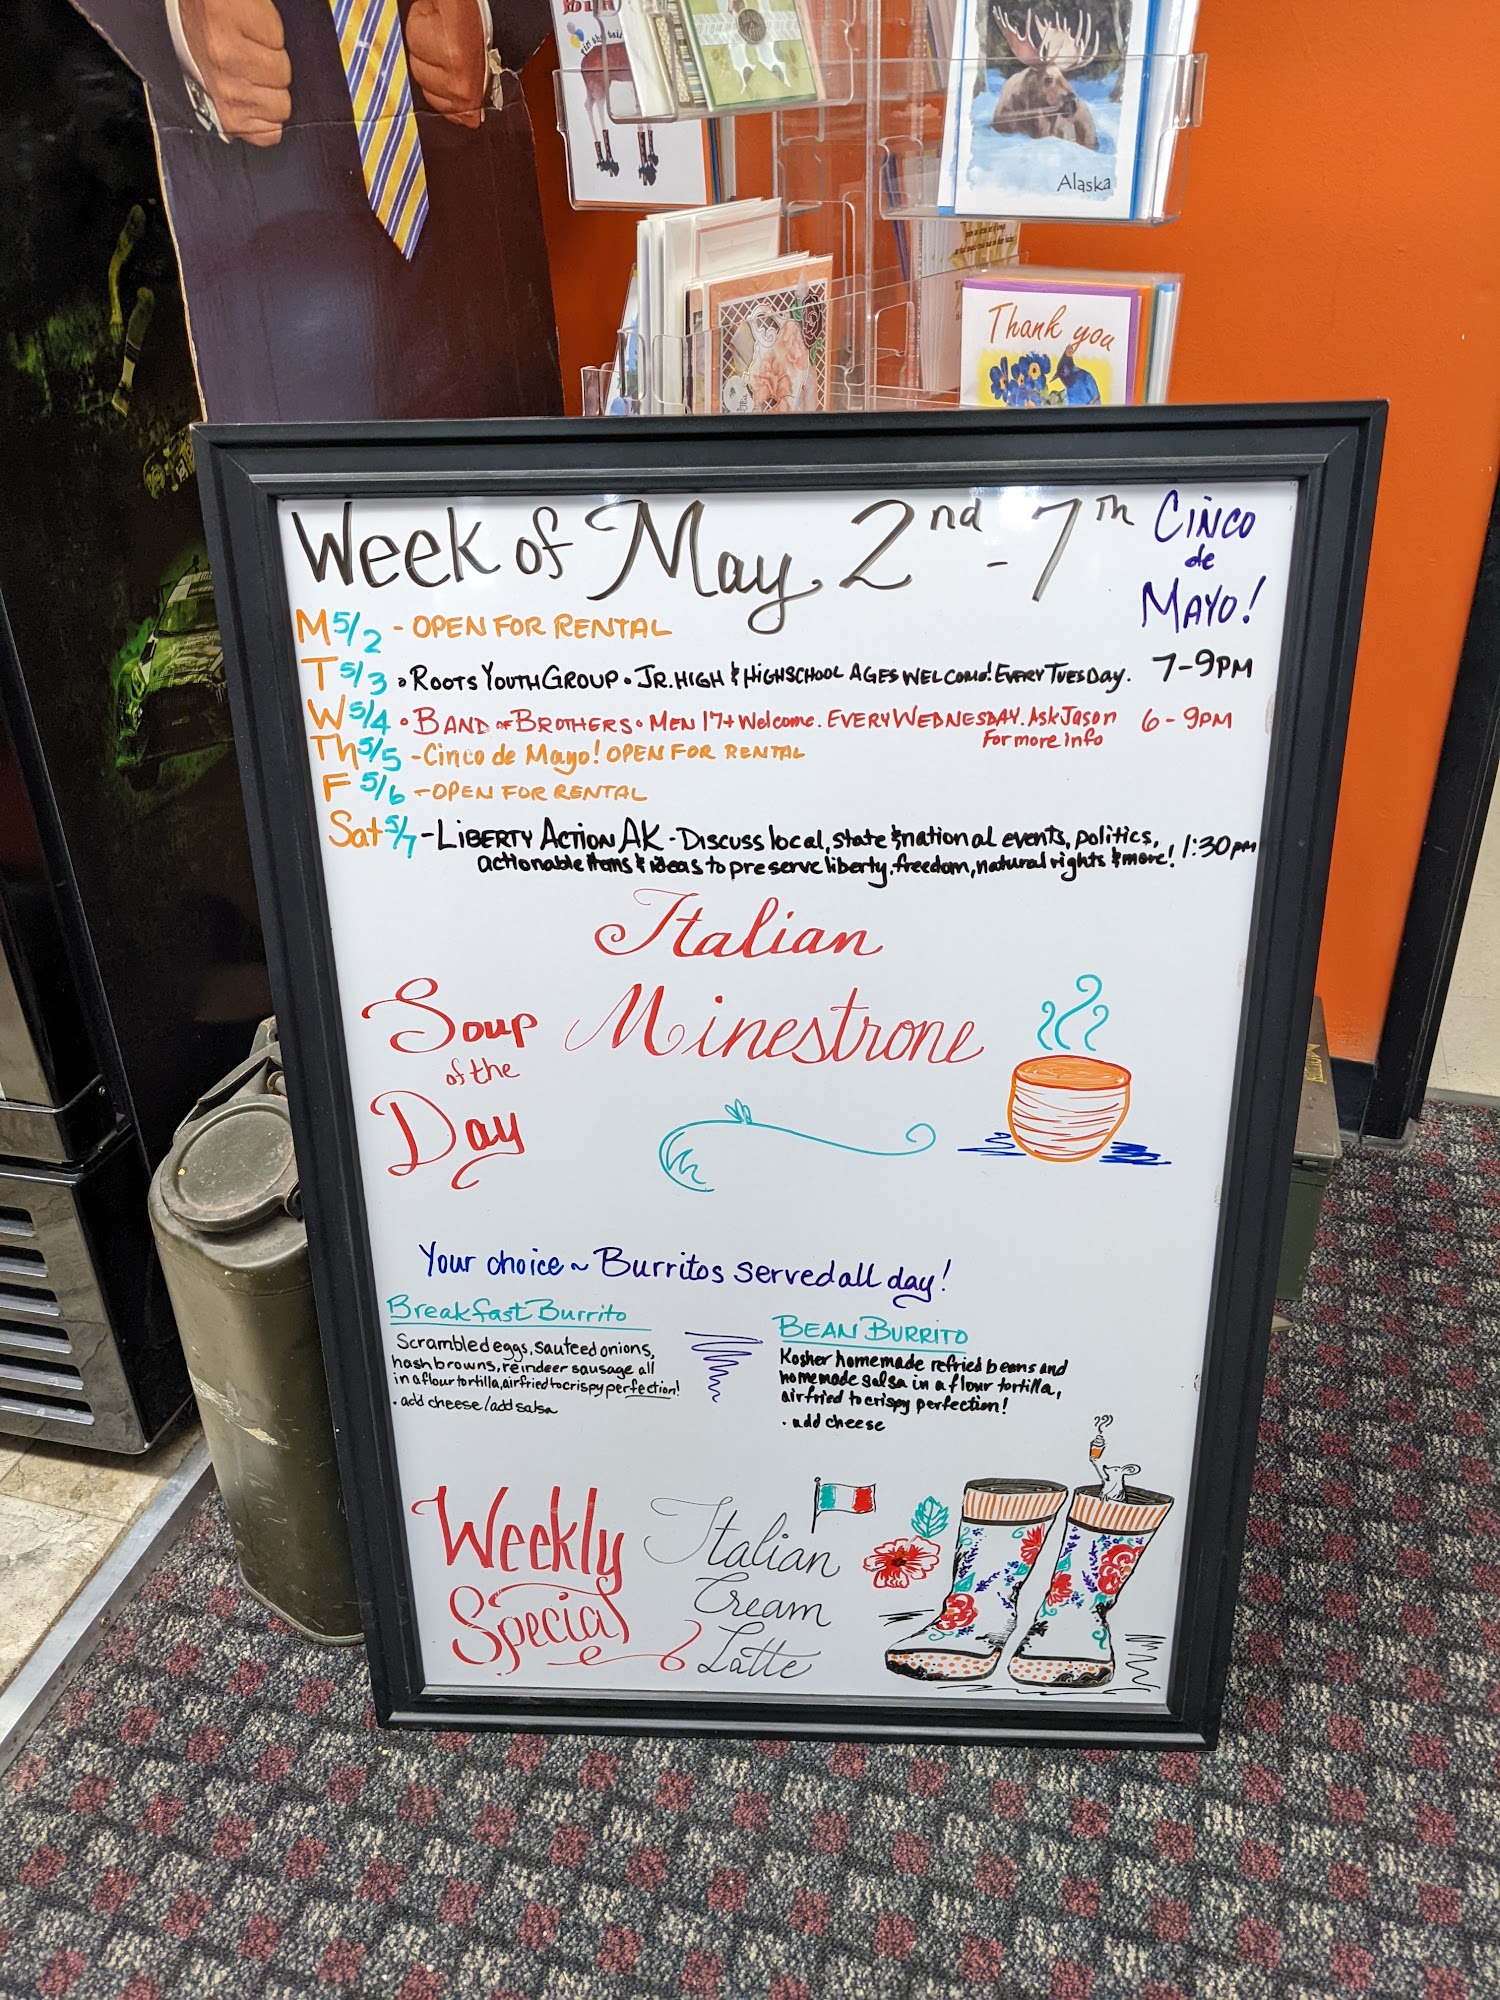 Alaska
Thank you
Week of May 2nd - 7th
CIÑCO
de
MAYO!
M 5/2 - OPEN FOR RENTAL
T 5/3 • ROOTS YOUTH GROUP • JR. HIGH & HIGHSCHOOL AGES WELCOME! EVERY TUESDAY. 7-9PM
W 5/4 • BAND OF BROTHERS • MEN 17+ Welcome. EVERY WEDNESDAY. Ask Jason 6-9PM
For more info
Th 5/5 - Cinco de Mayo! OPEN FOR RENTAL
F 5/6 - OPEN FOR RENTAL
Sat 5/7 - LIBERTY ACTION AK - Discuss local, state & national events, politics, 1:30pm
actionable items & ideas to preserve liberty, freedom, natural rights & more!
Italian
Minestrone
Soup
of the
Day
Your choice ~ Burritos served all day!
Breakfast Burrito
Scrambled eggs, sauteed onions,
hashbrowns, reindeer sausage all
in a flour tortilla, airfried to crispy perfection!
• add cheese/add salsa
BEAN BURRITO
Kosher homemade refried beans and
homemade salsa in a flour tortilla,
airfried to crispy perfection!
• add cheese
Weekly
Special
Italian
Cream
Latte